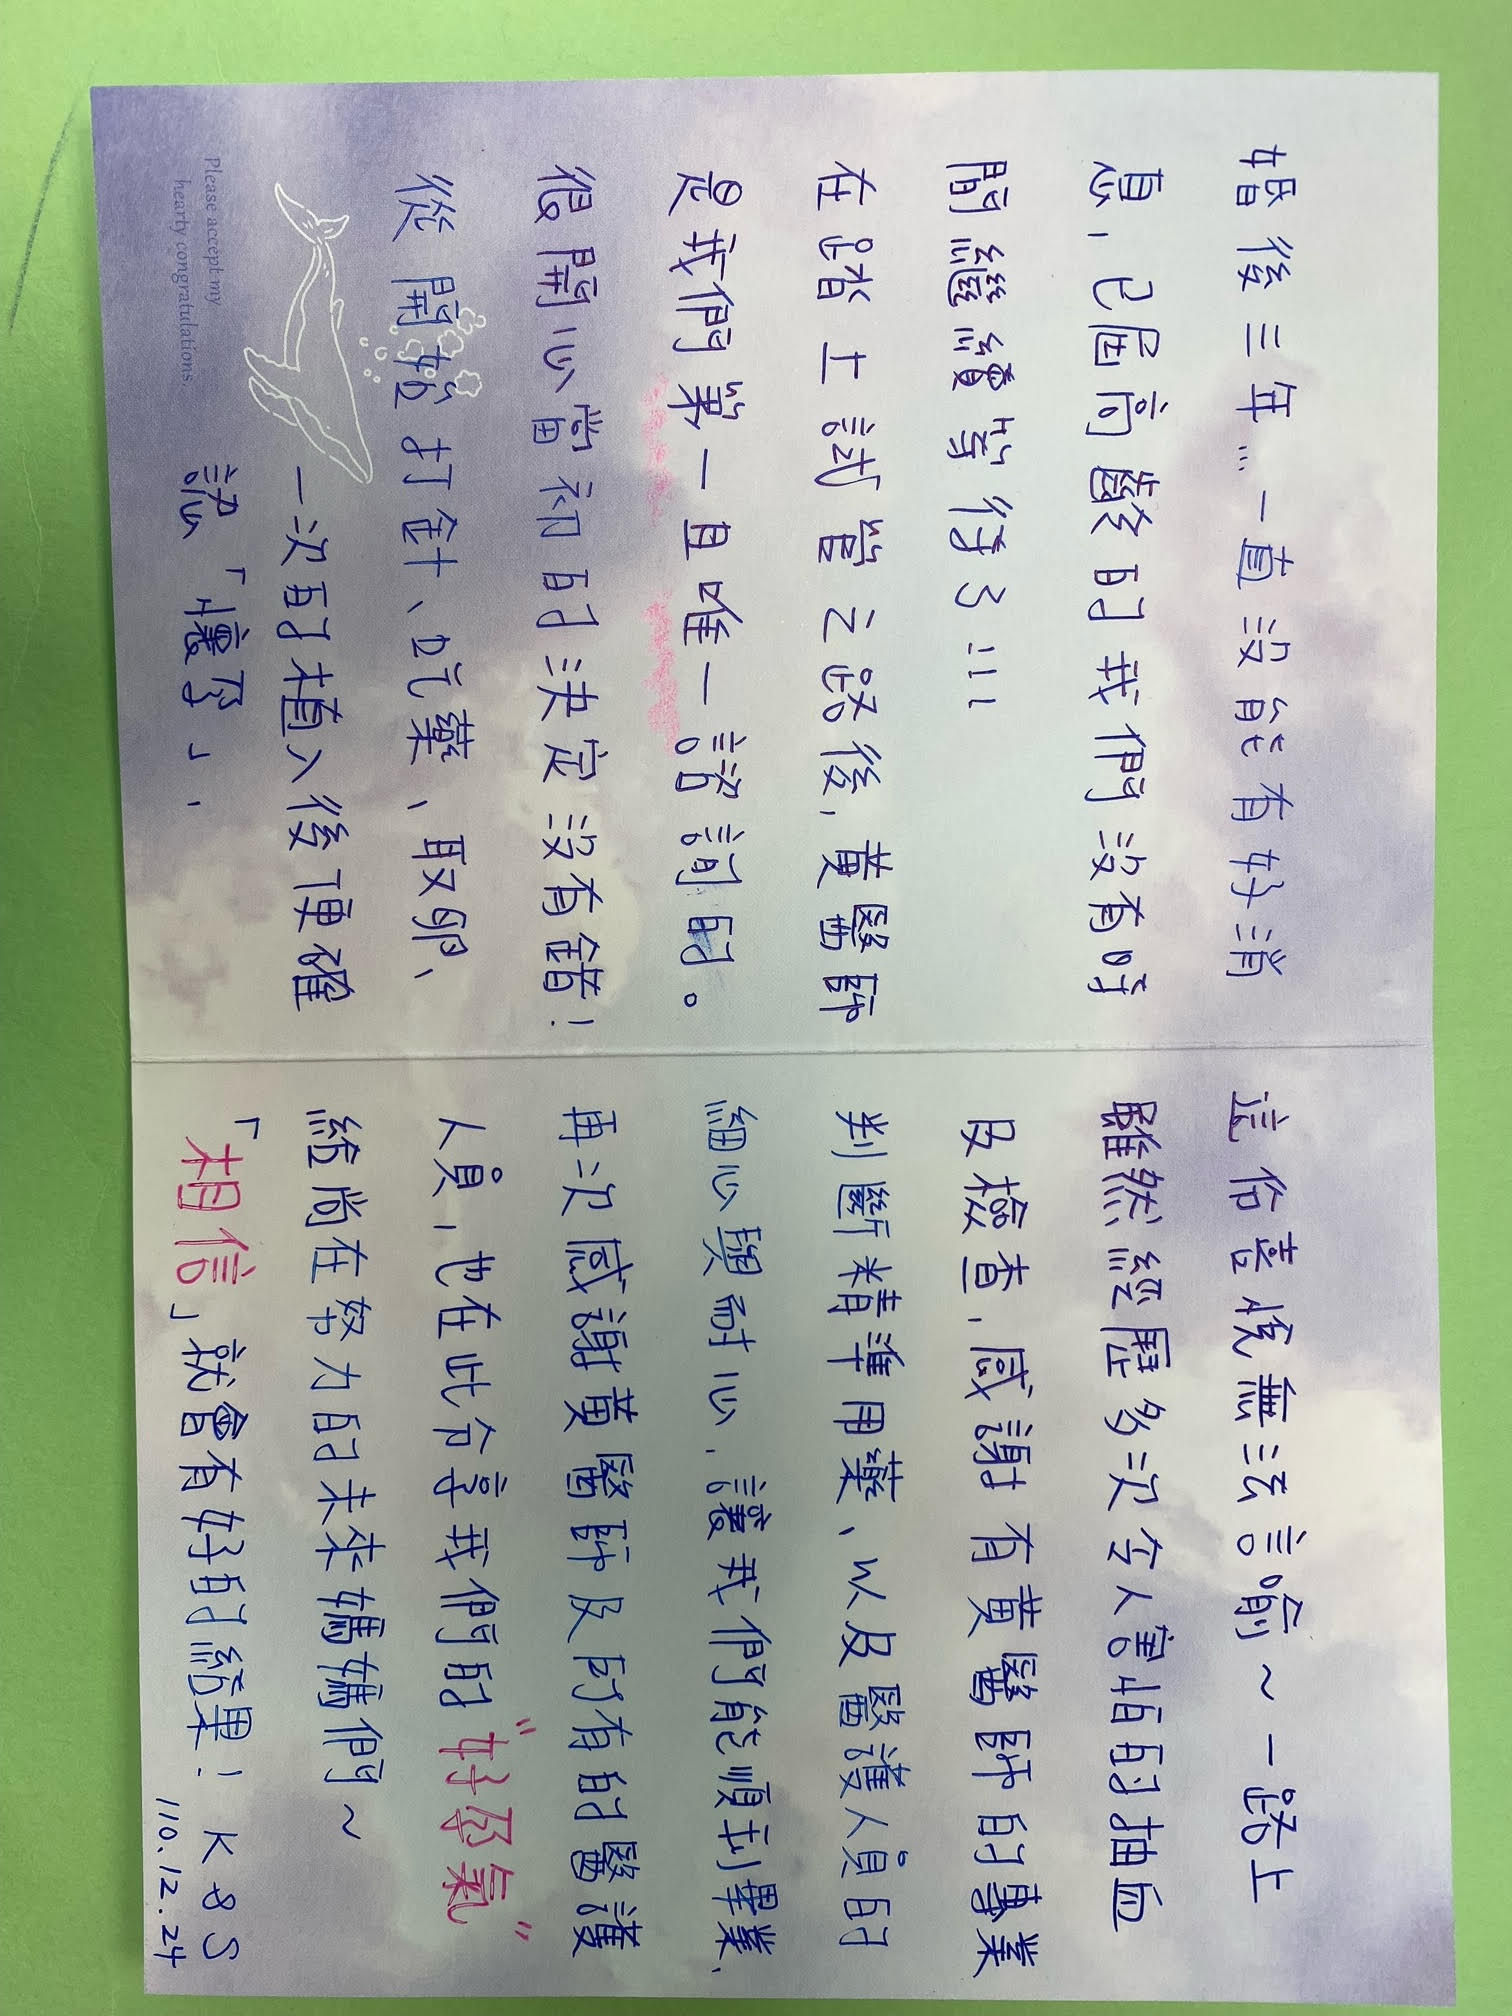 婚後三年…一直沒能有好消
息，已屆高齡的我們沒有時
間繼續等待了!!!
在踏上試管之路後，黃醫師
是我們第一且唯一諮詢的。
很開心當初的決定沒有錯！
從開始打針、吃藥、取卵、
一次的植入後便確
認「懷孕」，
Please accept my
hearty congratulations.
這份喜悅無法言喻～一路上
雖然經歷多次令人害怕的抽血
及檢查，感謝有黃醫師的專業
判斷精準用藥、以及醫護人員的
細心與耐心，讓我們能順利畢業，
再次感謝黃醫師及所有的醫護
人員，也在此分享我們的“好孕氣”
給尚在努力的未來媽媽們～
「相信」就會有好的結果！ K & S
110.12.24